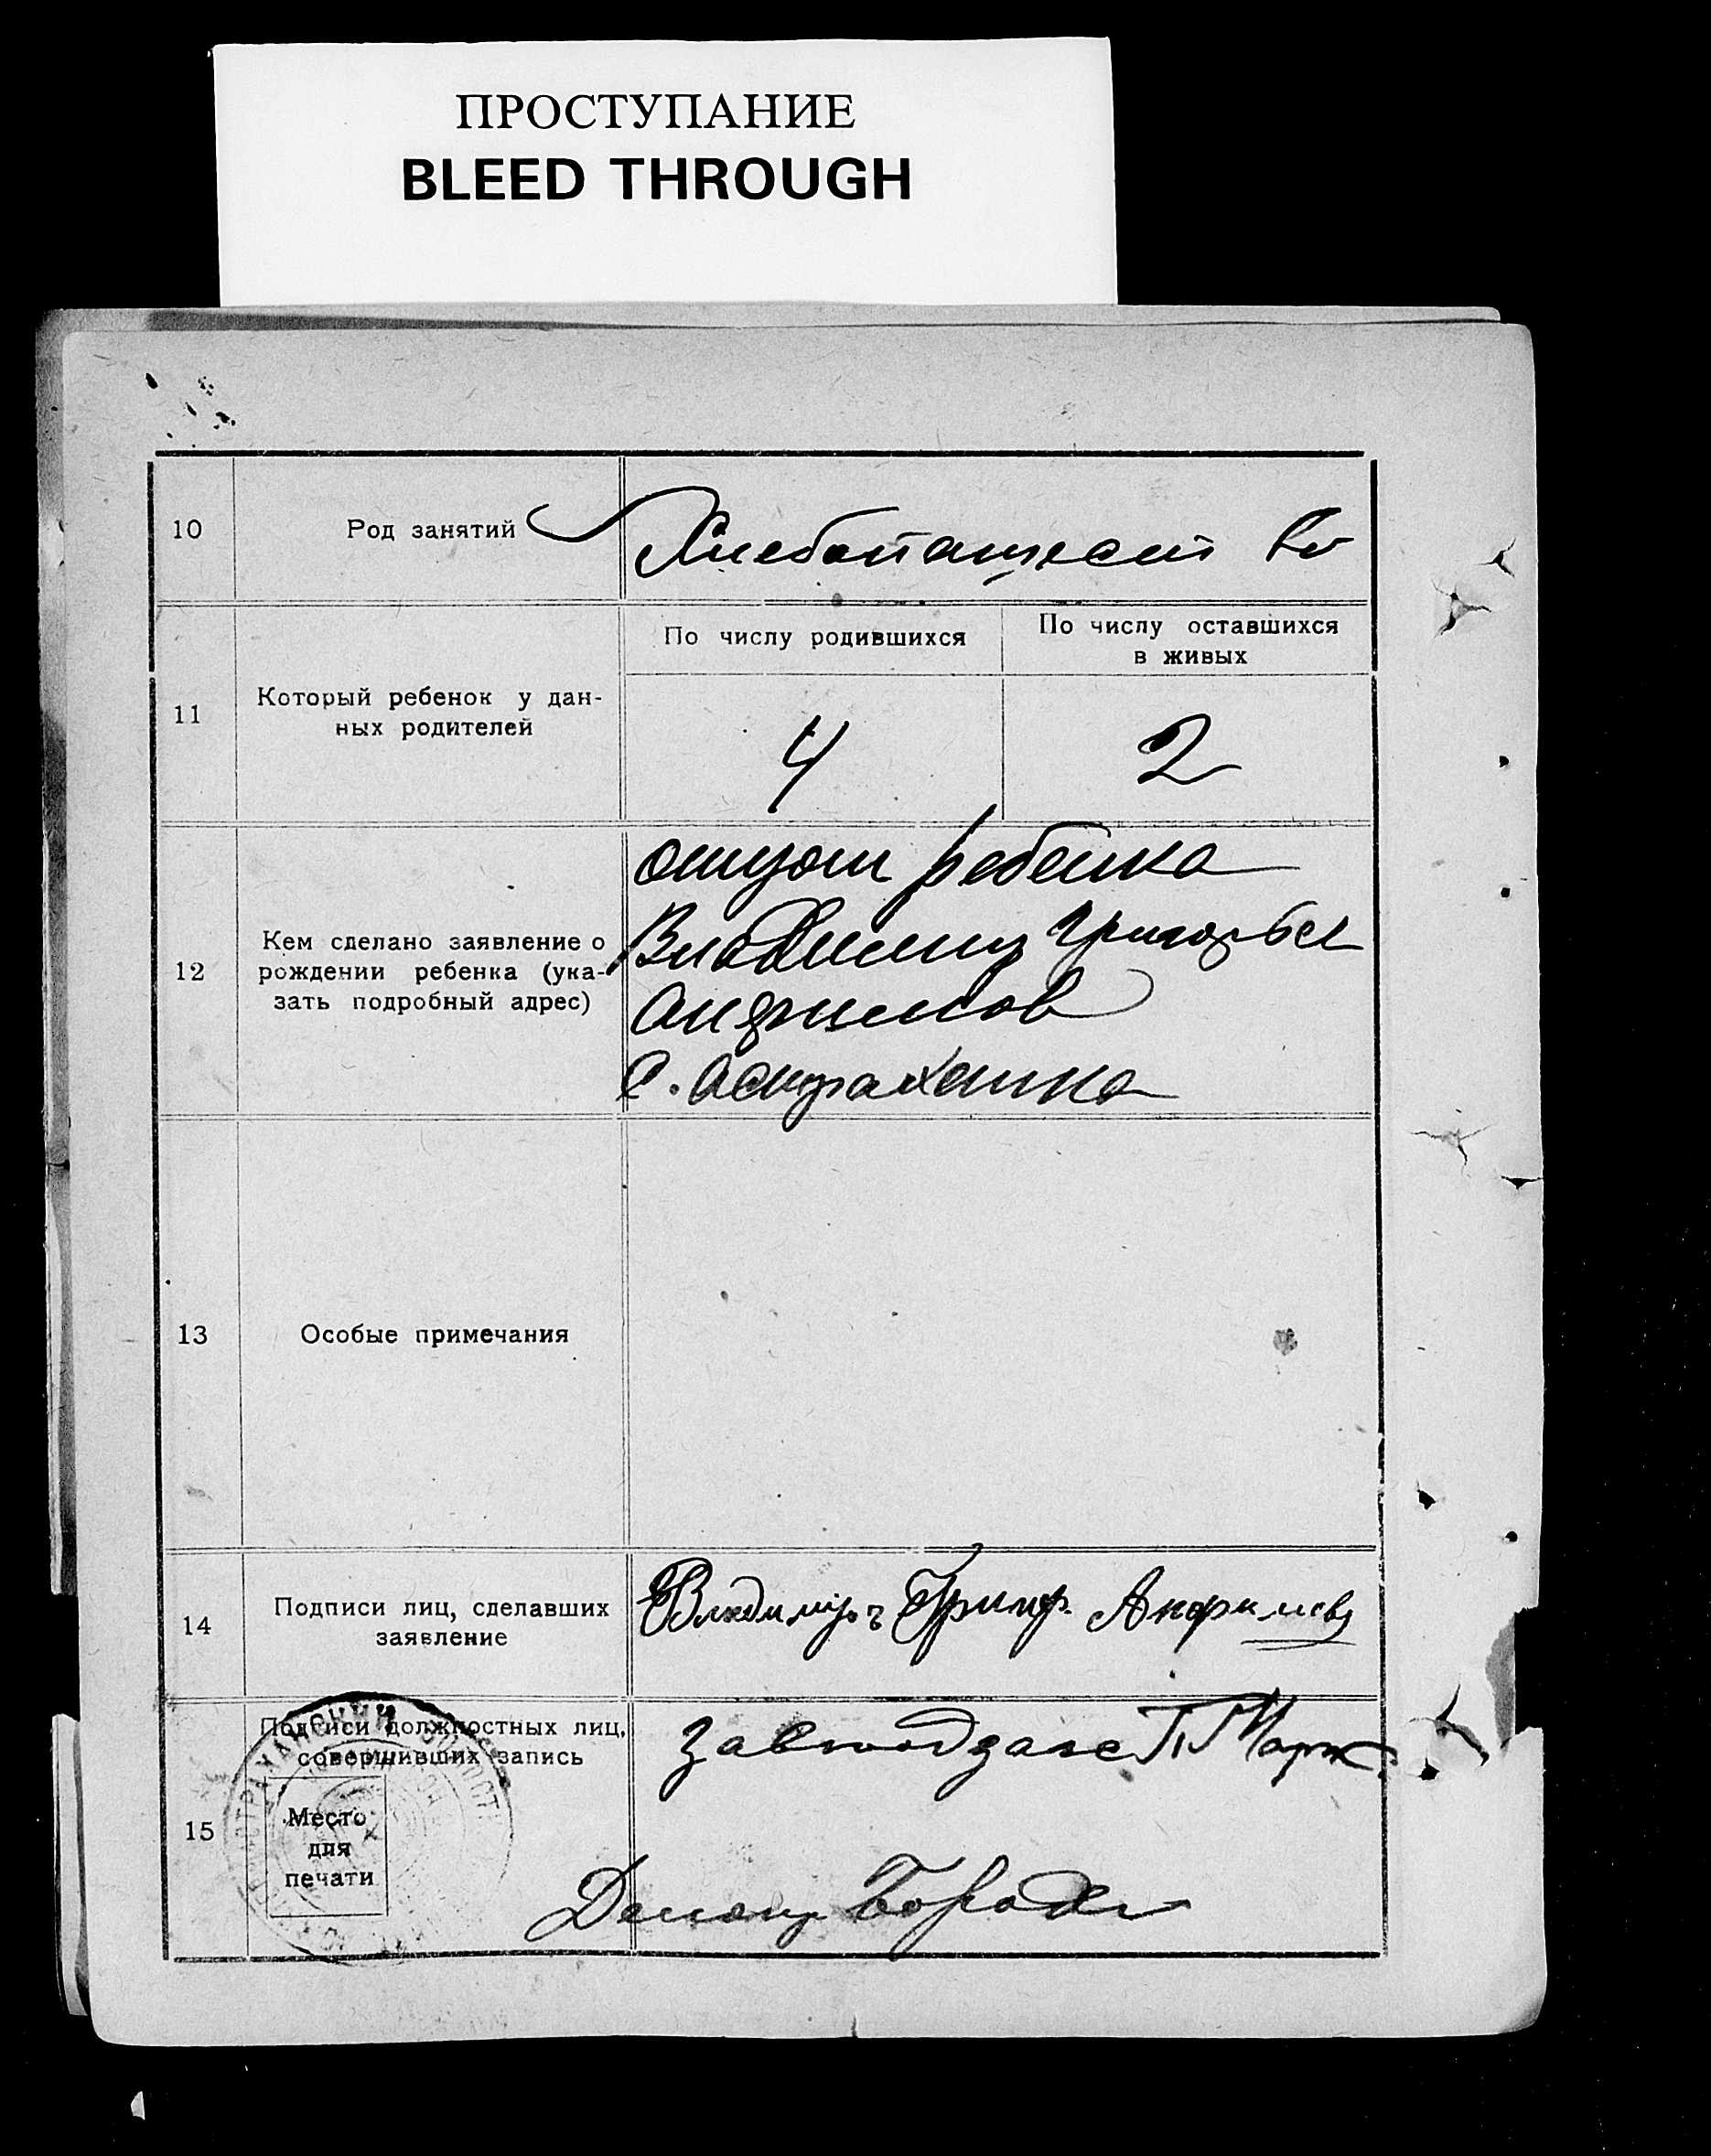 ПРОСТУПАНИЕ
BLEED THROUGH
10
Род занятий
Хлебопашест во
11
Который ребенок у дан-
ных родителей
По числу родившихся
По числу оставшихся
в живых
4
2
12
Кем сделано заявление о
рождении ребенка (ука-
зать подробный адрес)
отцом ребенка
Владимир Григорьев
Анфимов
С. Астраханка
13
Особые примечания
14
Подписи лиц, сделавших
заявление
Владимиръ Григор. Анфимовъ
15
Подписи должностных лиц,
совершивших запись
Место
для
печати